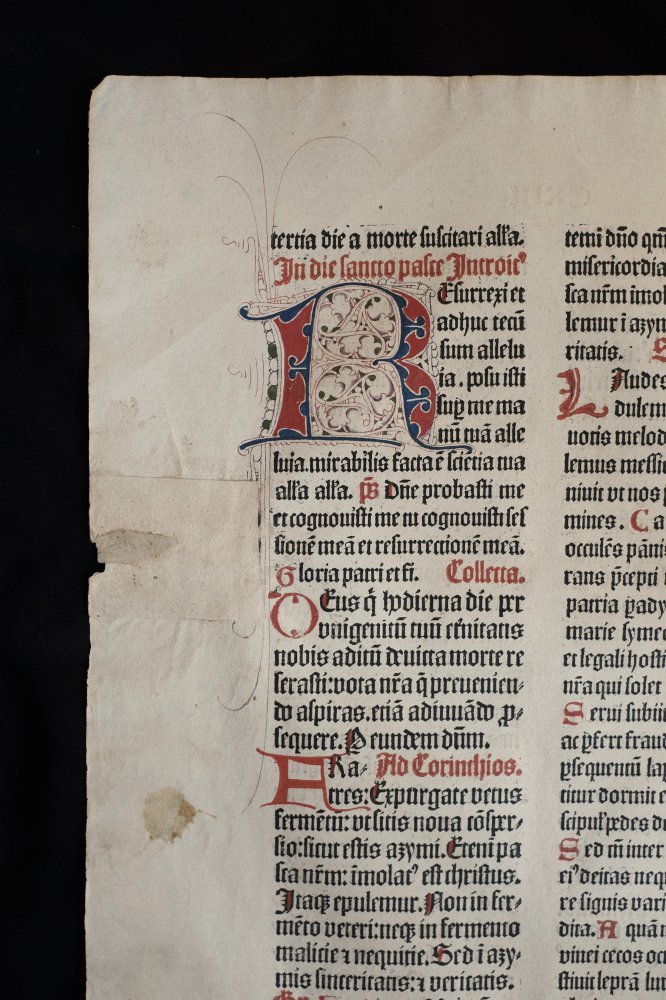 tertia die a morte suscitari alľa.
In die sancto pasce Introit⁹
Resurrexi et
adhuc tecū
sum allelu
ia. posuisti
suꝑ me ma
nū tuā alle
luia. mirabilis facta ē sciētia tua
alľa alľa. p̄s Dn̄e probasti me
et cognouisti me tu cognouisti ses
sionē meā et resurrectionē meā.
Gloria patri et fi. Collecta.
DEus q̇ hodierna die per
vnigenitū tuū et̄nitatis
nobis aditū deuicta morte re
serasti: vota nr̄a q̄ preuenien⸗
do aspiras. etiā adiuuādo ꝓ⸗
sequere. Per eundem dn̄m.
Ad Corinthios.
FRa⸗
tres: Expurgate vetus
fermētū: vt sitis noua cōsper⸗
sio: sicut estis azymi. Eteni pa
sca nr̄m: īmolat⁹ est christus.
Itaqꝫ epulemur. Non in fer⸗
mēto veteri: neqꝫ in fermento
malicie ⁊ nequitie. Sed ī azy⸗
mis sinceritatis: ⁊ veritatis.
temi dn̄o qm̄
misericordia
sca nr̄m īmol
lemur ī azym
ritatis.
LAudes
dulem
uotis melod
lemus messi
niuit vt nos
mines. C a
occulēs pānis
rans p̄cepti
patria p̄ady
marie symeo
et legali hosti
nr̄a qui solet
Serui subiit
ac ꝑfert fraud
ꝑsequentū lap
titur dormit e
scipul⁹ pedes
Sed m̄ inter
ei⁹ deitas neq
re signis vari
dita. A quā
vinei cecos oc
stiuit leprā lu